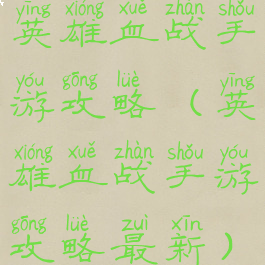 yīng xióng xuè zhàn shǒu
英雄血战手
yóu gōng lüè yīng
游攻略（英
xióng xuě zhàn shǒu yóu
雄血战手游
gōng lüè zuì xīn
攻略最新）